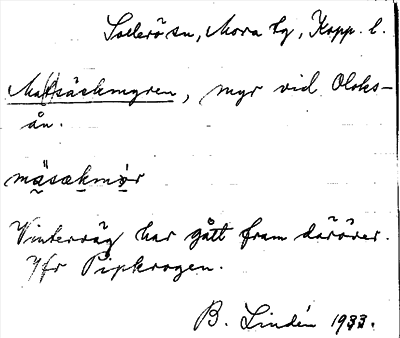 Sollerö sn, Mora tg, Kopp. l.
Ma(t)säckmyren, myr vid Oloks-
ån.
mäsækmỳr
Vinterväg har gått fram däröver.
Jfr Pipkrogen.
B. Lindén 1933.